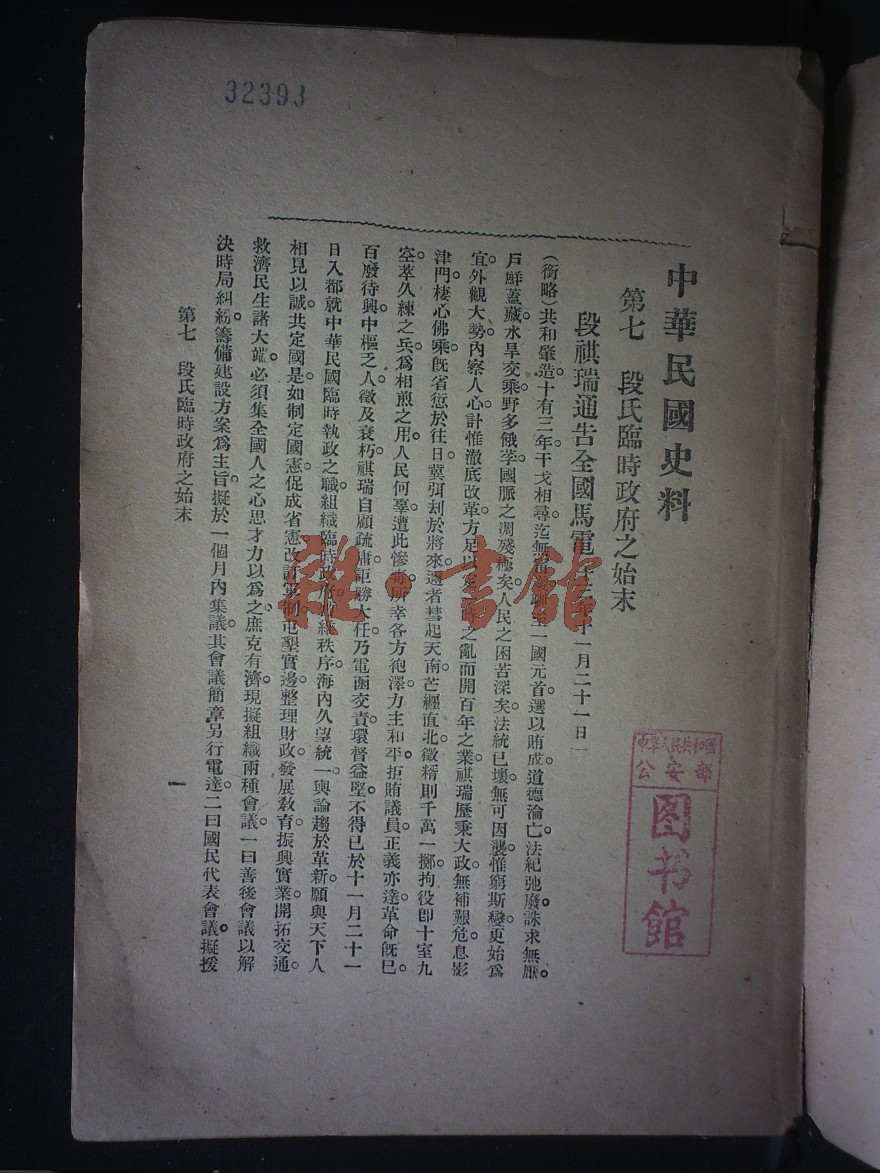 32393
中華民國史料
第七　段氏臨時政府之始末
段祺瑞通告全國馬電 十一月二十一日
（銜略）共和肇造十有三年干戈相尋迄無 至一國元首選以賄成道德淪亡法紀弛廢誅求無厭。
戶鮮蓋藏水旱交乘野多餓莩國脈之凋殘極矣人民之困苦深矣法統已壞無可因襲惟窮斯變更始爲
宜。外觀大勢內察人心計惟澈底改革方足以定 之亂而開百年之業祺瑞歷秉大政無補艱危息影
津門棲心佛乘旣省愆於往日冀弭刦於將來。邇者彗起天南芒纏直北徵糈則千萬一擲拘役卽十室九
空。萃久練之兵爲相煎之用人民何辜遭此慘毒。所幸各方袍澤力主和平拒賄議員正義亦達。革命旣已
百廢待興。中樞乏人徵及衰朽祺瑞自顧疏庸詎勝大任。乃電函交責環督益堅。不得已於十一月二十一
日入都就中華民國臨時執政之職組織臨時政府 秩序。海內久望統一輿論趨於革新。願與天下人
相見以誠。共定國是。如制定國憲促成省憲改 制屯墾實邊整理財政。發展敎育。振興實業。開拓交通
救濟民生諸大端必須集全國人之心思才力以爲之。庶克有濟。現擬組織兩種會議一曰善後會議以解
決時局糾紛籌備建設方案爲主旨。擬於一個月內集議。其會議簡章另行電達。二曰國民代表會議擬援
第七　段氏臨時政府之始末
一
中华人民共和国
公安部
图书馆
書館